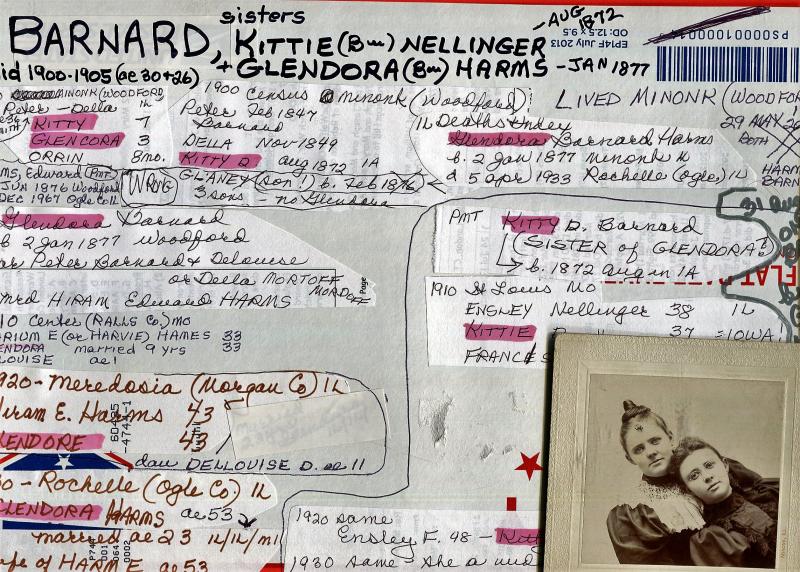 sisters
BARNARD, KITTIE (Bar) NELLINGER - AUG 1872
+ GLENDORA (Bar) HARMS - JAN 1877
id 1900-1905 (ae 30+26)
EP14F July 2013
OD: 12.5 x 9.5
PS00001000014
MINONK (WOODFORD
Peter - Della IL
KITTY 7
GLENCORA 3
ORRIN 8mo.
MS, Edward PMT
JUN 1876 Woodford
DEC 1967 Ogle Co IL
1900 Census Minonk (Woodford) IL
Peter Feb 1847
Barnard
DELLA Nov 1849
KITTY D aug 1872 IA
WRONG GLANEY (son!) b. Feb 1876
3 sons - no Glendora
LIVED MINONK (WOODFOR
IL Deaths Index
Glendora Barnard Harms
b. 2 Jan 1877 Minonk IL
d 5 apr 1933 Rochelle (Ogle) IL
29 MAY
BOTH
HARM
BARN
31 aug
Glendora Barnard
b 2 Jan 1877 Woodford
Peter Barnard & Delouise
or Della MORTOFF
MORDOFF
Page
med HIRAM Edward HARMS
10 Center (RALLS Co) MO
ARIUM E (or HARVIE) HAMES 33
ENDORA married 9 yrs 33
LOUISE ae 1
PMT KITTY D. Barnard
(SISTER of GLENDORA?)
b. 1872 aug in IA
FLAT
1910 St Louis Mo
ENSLEY Nellinger 38 IL
KITTIE 37 IOWA
FRANCES
920 - Meredosia (Morgan Co) IL
Hiram E. Harms 43
LENDORE 43
dau DELLOUISE D. ae 11
30 - Rochelle (Ogle Co.) IL
GLENDORA HARMS ae 53
married ae 23 IL/IL/MI
wife of HARM E ae 53
1920 same
Ensley F. 48 - Kitt
1930 same - she a wid